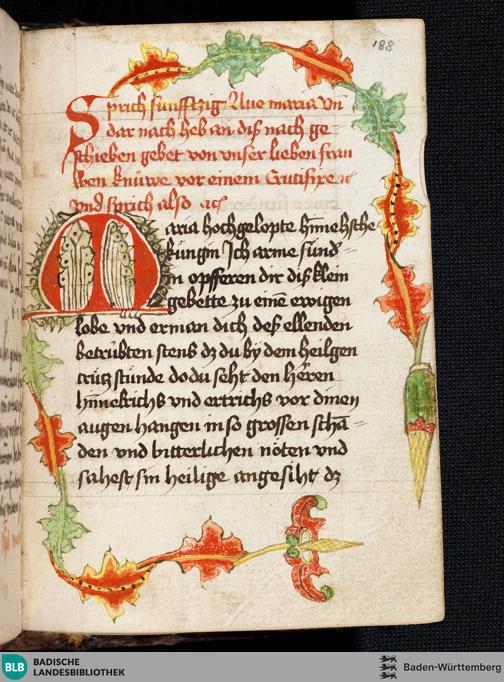 188
Sprich funfftzig Aue maria vn
dar nach heb an diß nach ge-
schieben gebet von vnser lieben frau
wen knüwe vor einem Crutifixe
vnd sprich also
Maria hochgelopte himelsche
küngin Ich arme sünd
in opfferen dir diß klein
gebette zu eine ewigen
lobe vnd erman dich deß ellenden
betrübten stens dz du by dem heilgen
crütz stünde do du seht den herren
himelrichs vnd ertrichs vor dinen
augen hangen in so grossen scha
den vnd bitterlichen nöten vnd
sahest sin heilige angesiht dz
BLB BADISCHE
LANDESBIBLIOTHEK
Baden-Württemberg